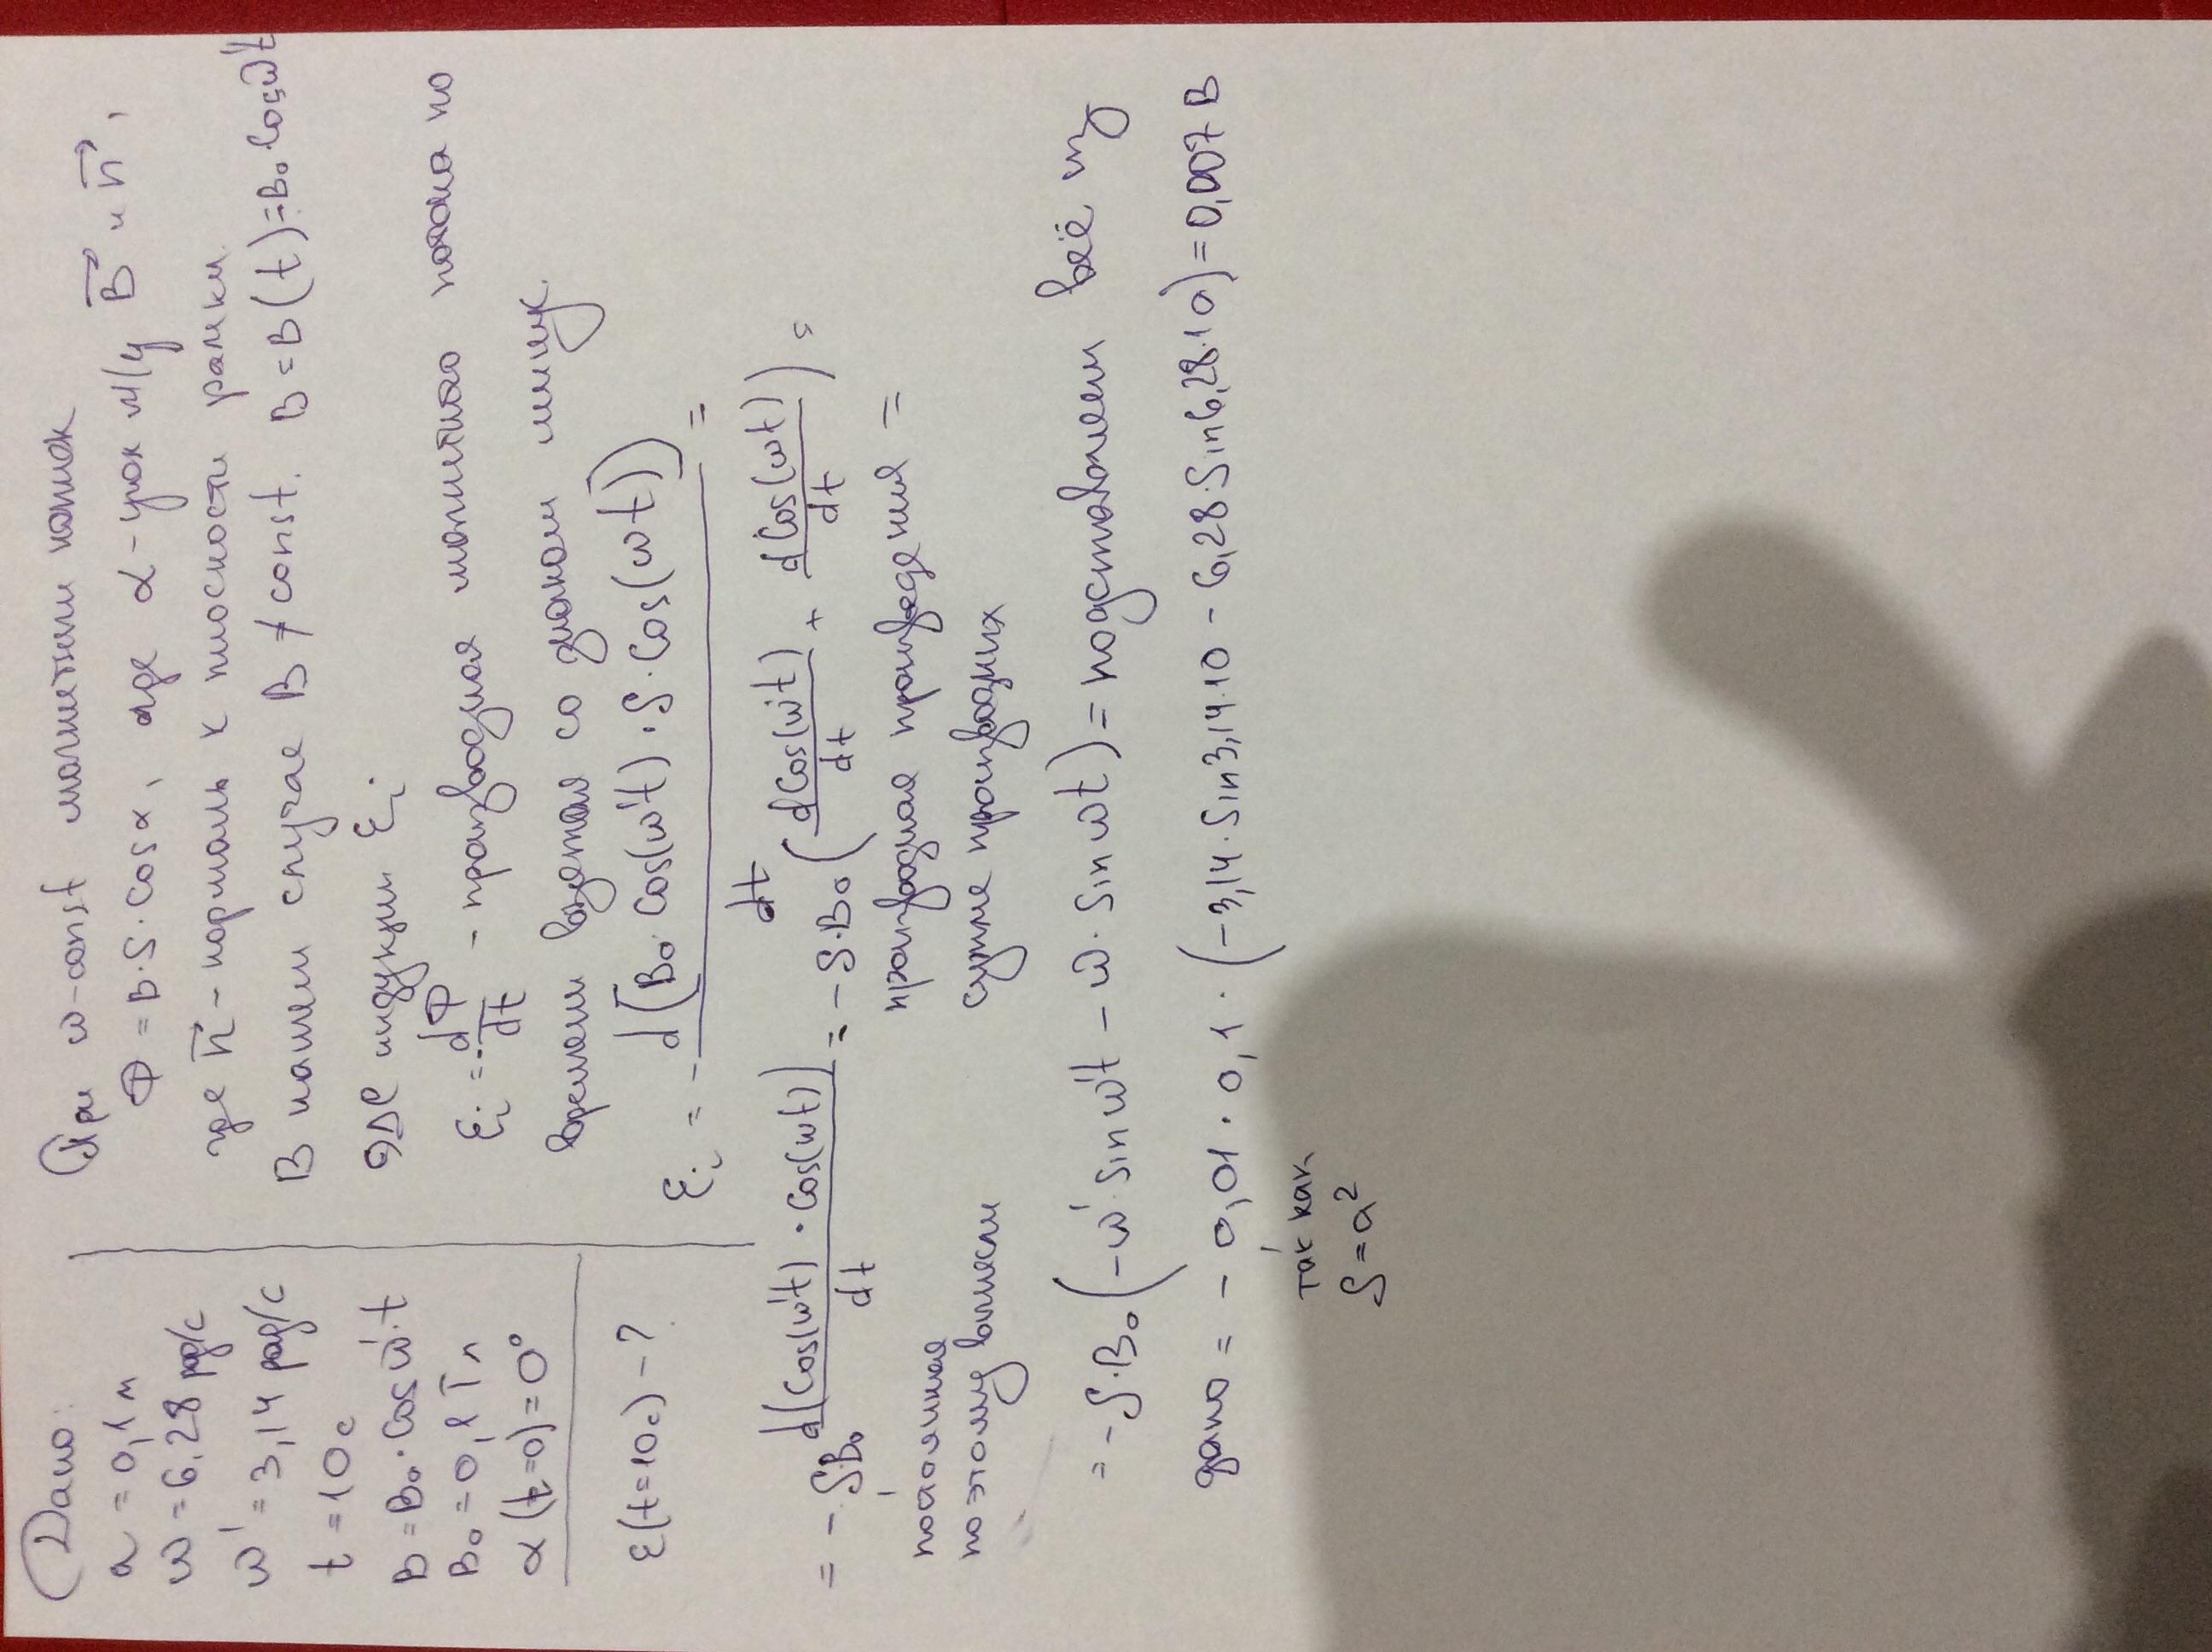 Дано:
a = 0,1 м
ω = 6,28 рад/с
ω' = 3,14 рад/с
t = 10 с
B = B₀ · cos ω'·t
B₀ = 0,1 Тл
α (t=0) = 0°
ε(t=10с) - ?
При ω-const магнитный поток
Φ = B·S·cos α, где α - угол м/у B⃗ и n⃗,
где n⃗ - нормаль к плоскости рамки.
В нашем случае B ≠ const. B = B(t) = B₀·cos ω't
ЭДС индукции εᵢ:
εᵢ = -dΦ/dt - производная магнитного потока по
времени взятая со знаком минус.
εᵢ = - d(B₀·cos(ω't)·S·cos(ωt))/dt =
= - SB₀ d(cos(ω't)·cos(ωt))/dt = - S·B₀ (dcos(ω't)/dt + dcos(ωt)/dt) =
постоянные
поэтому вынесли
производная произведения =
сумме производных
= - S·B₀ (-ω' sin ω't - ω·sin ωt) = подставляем всё из
дано = - 0,01 · 0,1 · (-3,14·sin 3,14·10 - 6,28·sin 6,28·10) = 0,007 В
так как
S = a²